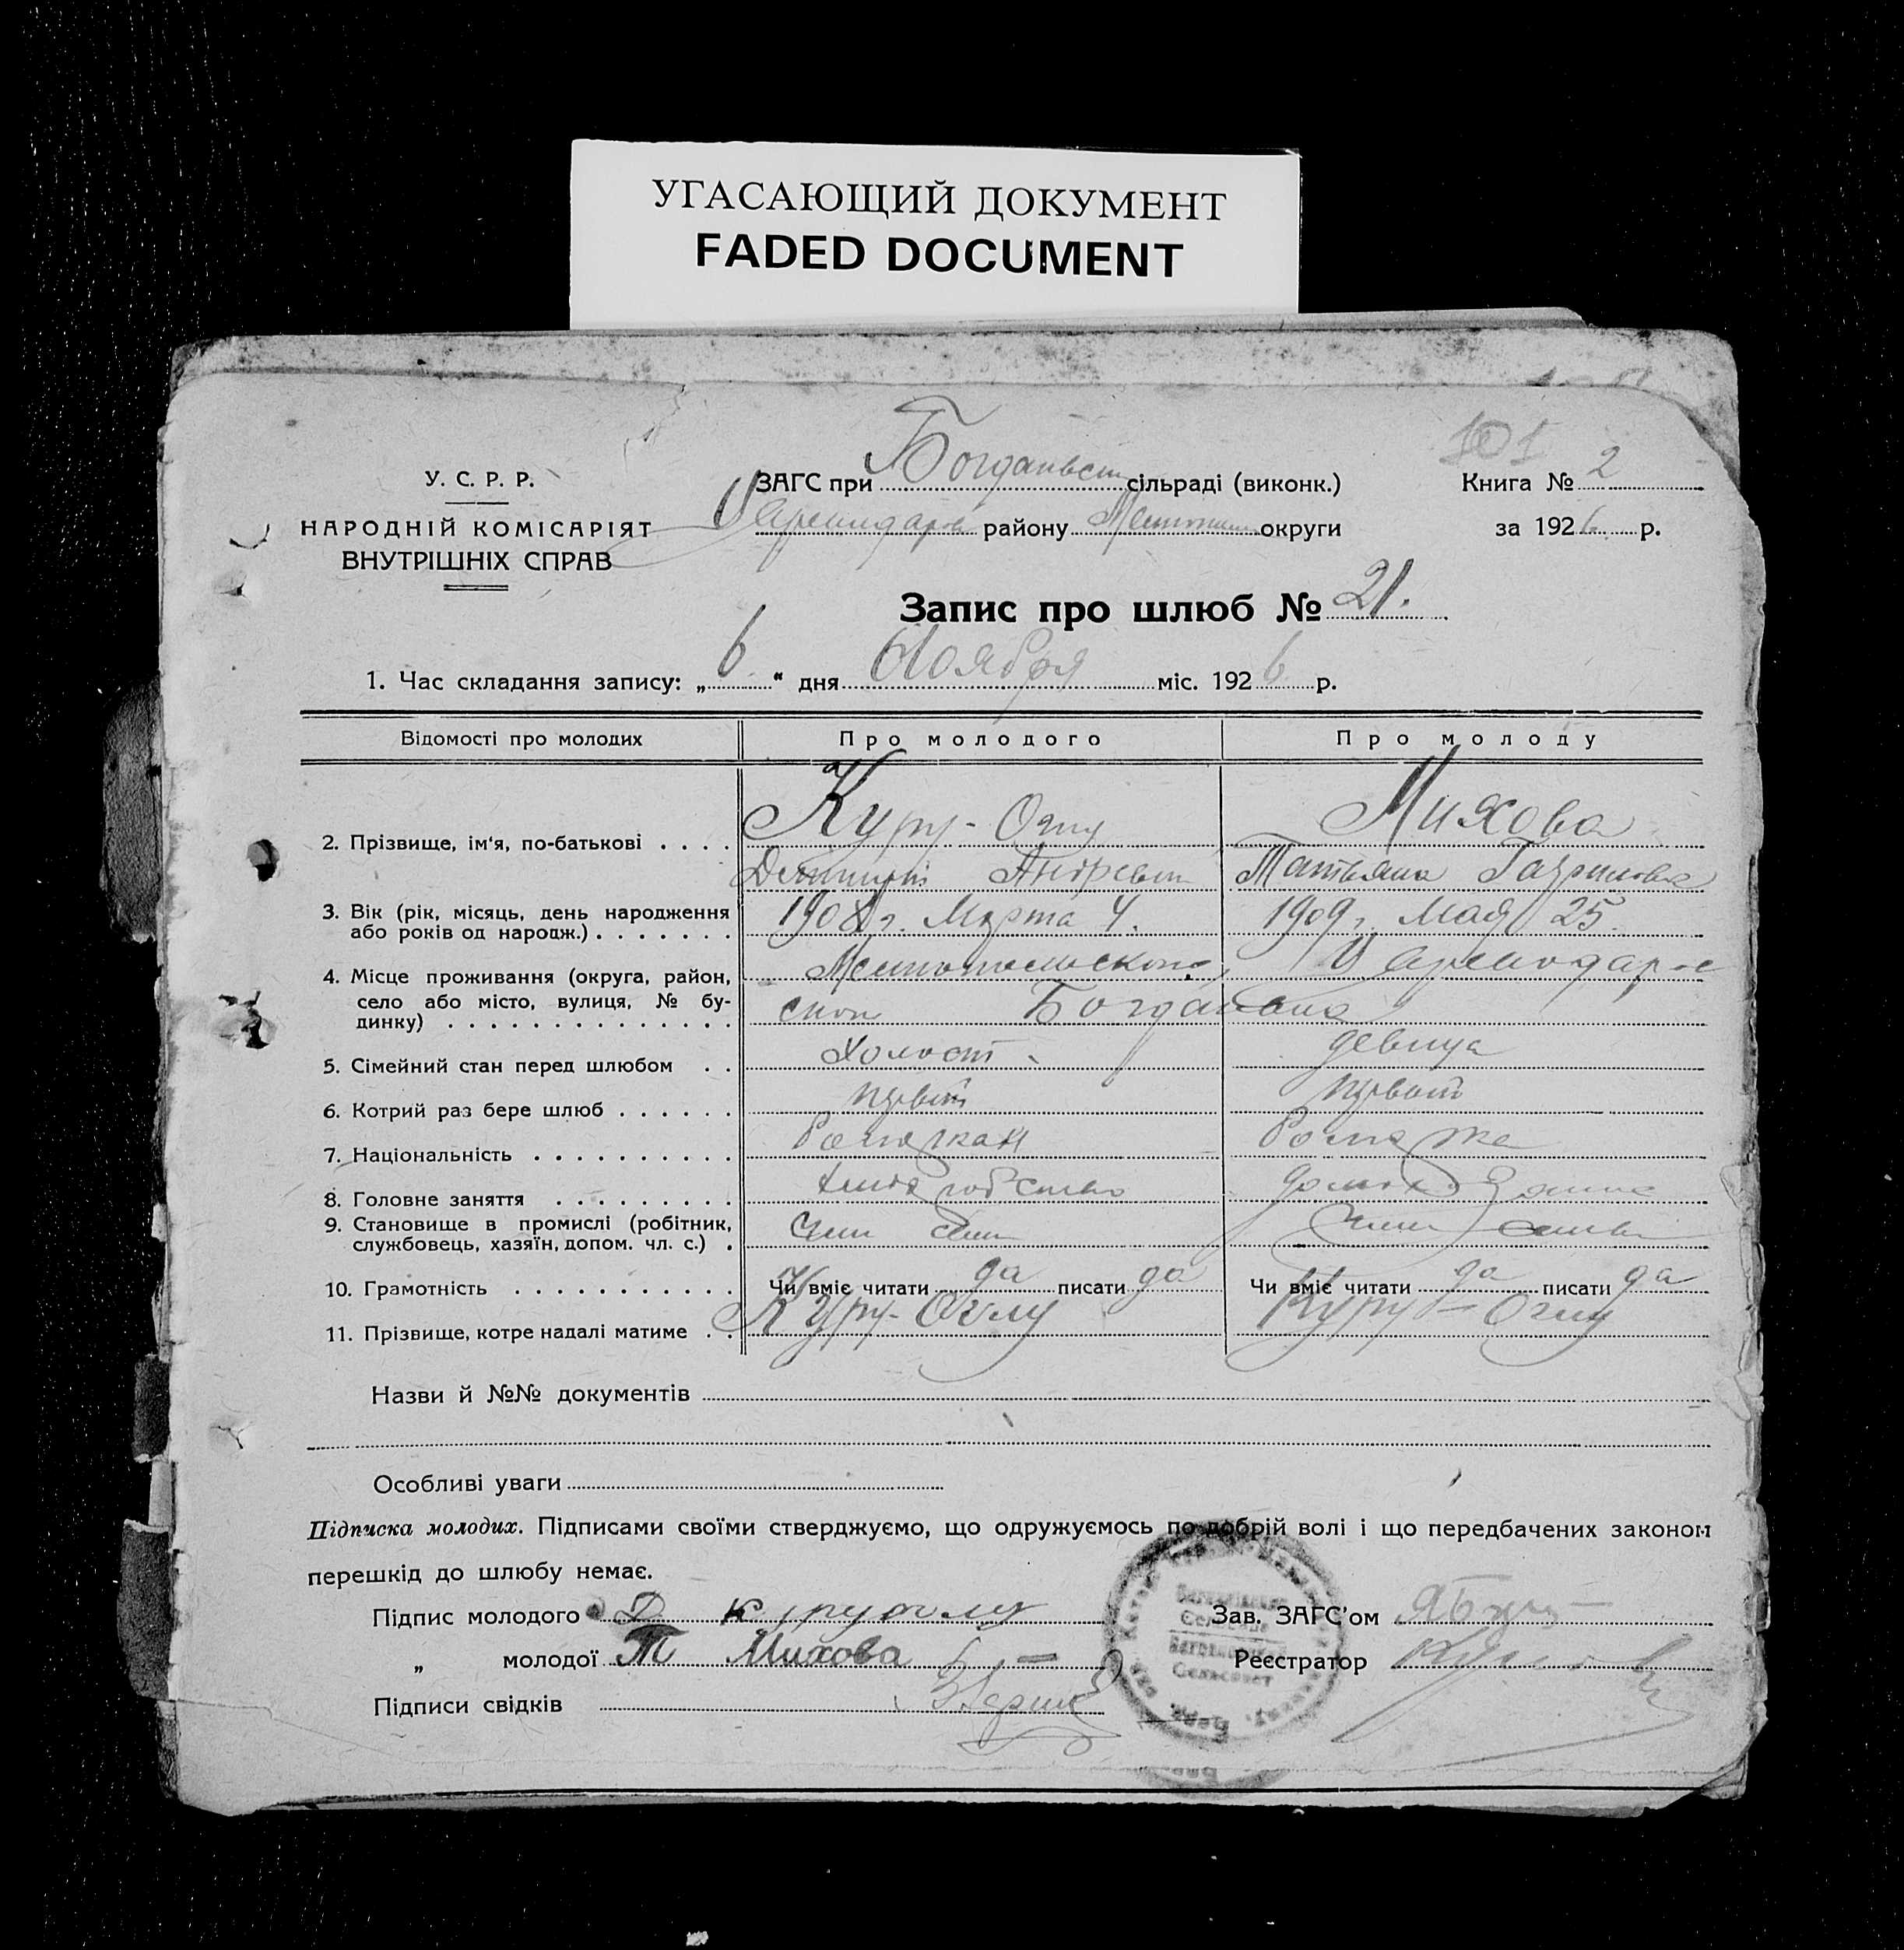 УГАСАЮЩИЙ ДОКУМЕНТ
FADED DOCUMENT
101
У. С. Р. Р.
НАРОДНІЙ КОМІСАРІЯТ
ВНУТРІШНІХ СПРАВ
ЗАГС при Богданівск сільраді (виконк.)
району округи
Книга № 2
за 1926 р.
Запис про шлюб № 21.
1. Час складання запису: „6“ дня Ноября міс. 1926 р.
Відомості про молодих Про молодого Про молоду
2. Прізвище, ім'я, по-батькові . . . . Куру-Оглу Михова
Дмитрий Андреевич Татьяна Гавриловна
3. Вік (рік, місяць, день народження 1908 г. Марта 4. 1909 г. Мая 25.
або років од народж.) . . . . . . .
4. Місце проживання (округа, район, Мелитопольской
село або місто, вулиця, № бу- ской Богдановка
динку) . . . . . . . . . . . . . .
5. Сімейний стан перед шлюбом . . Холост девица
6. Котрий раз бере шлюб . . . . . . первый первый
7. Національність . . . . . . . . . .
8. Головне заняття . . . . . . . . .
9. Становище в промислі (робітник, член семи член семьи
службовець, хазяїн, допом. чл. с.) .
10. Грамотність . . . . . . . . . . . Чи вміє читати да писати да Чи вміє читати да писати да
11. Прізвище, котре надалі матиме . . Куру-Оглу Куру-Оглу
Назви й №№ документів
Особливі уваги
Підписка молодих. Підписами своїми стверджуємо, що одружуємось по добрій волі і що передбачених законом
перешкід до шлюбу немає.
Підпис молодого Д куруоглу Зав. ЗАГС'ом
„ молодої Т Михова Реєстратор
Підписи свідків